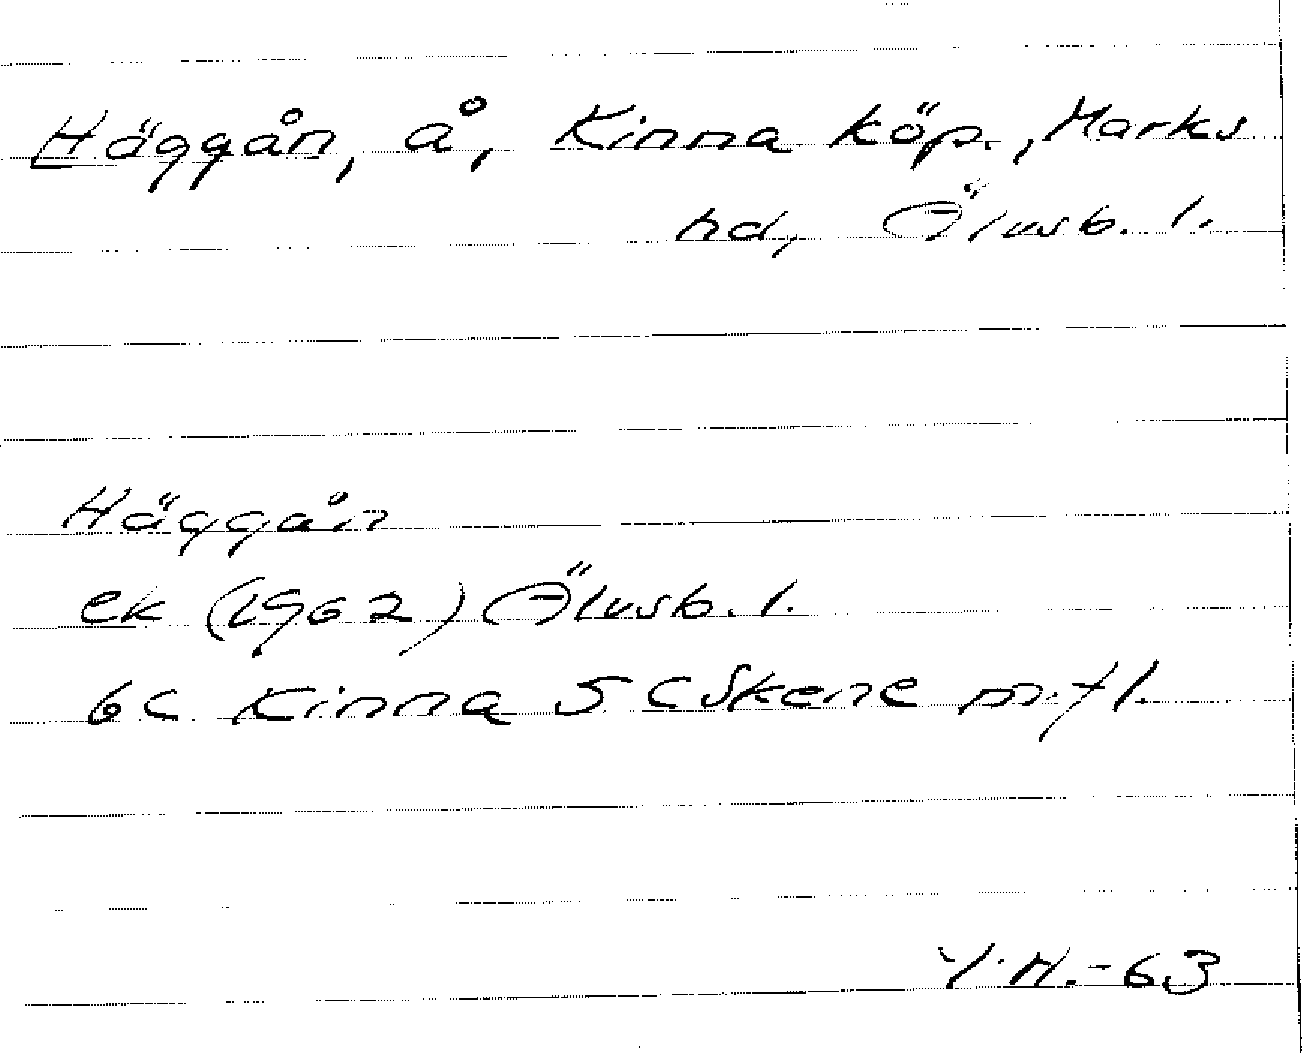 Häggån, å, Kinna köp., Marks
hd, Älvsb. l.
Häggån
ek (1962) Älvsb. l.
6c Kinna 5c Skene m. fl.
Y.H.-63